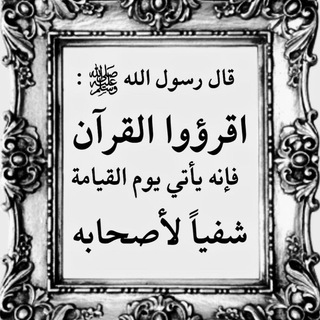 قال رسول الله ﷺ :
اقرؤوا القرآن
فإنه يأتي يوم القيامة
شفياً لأصحابه